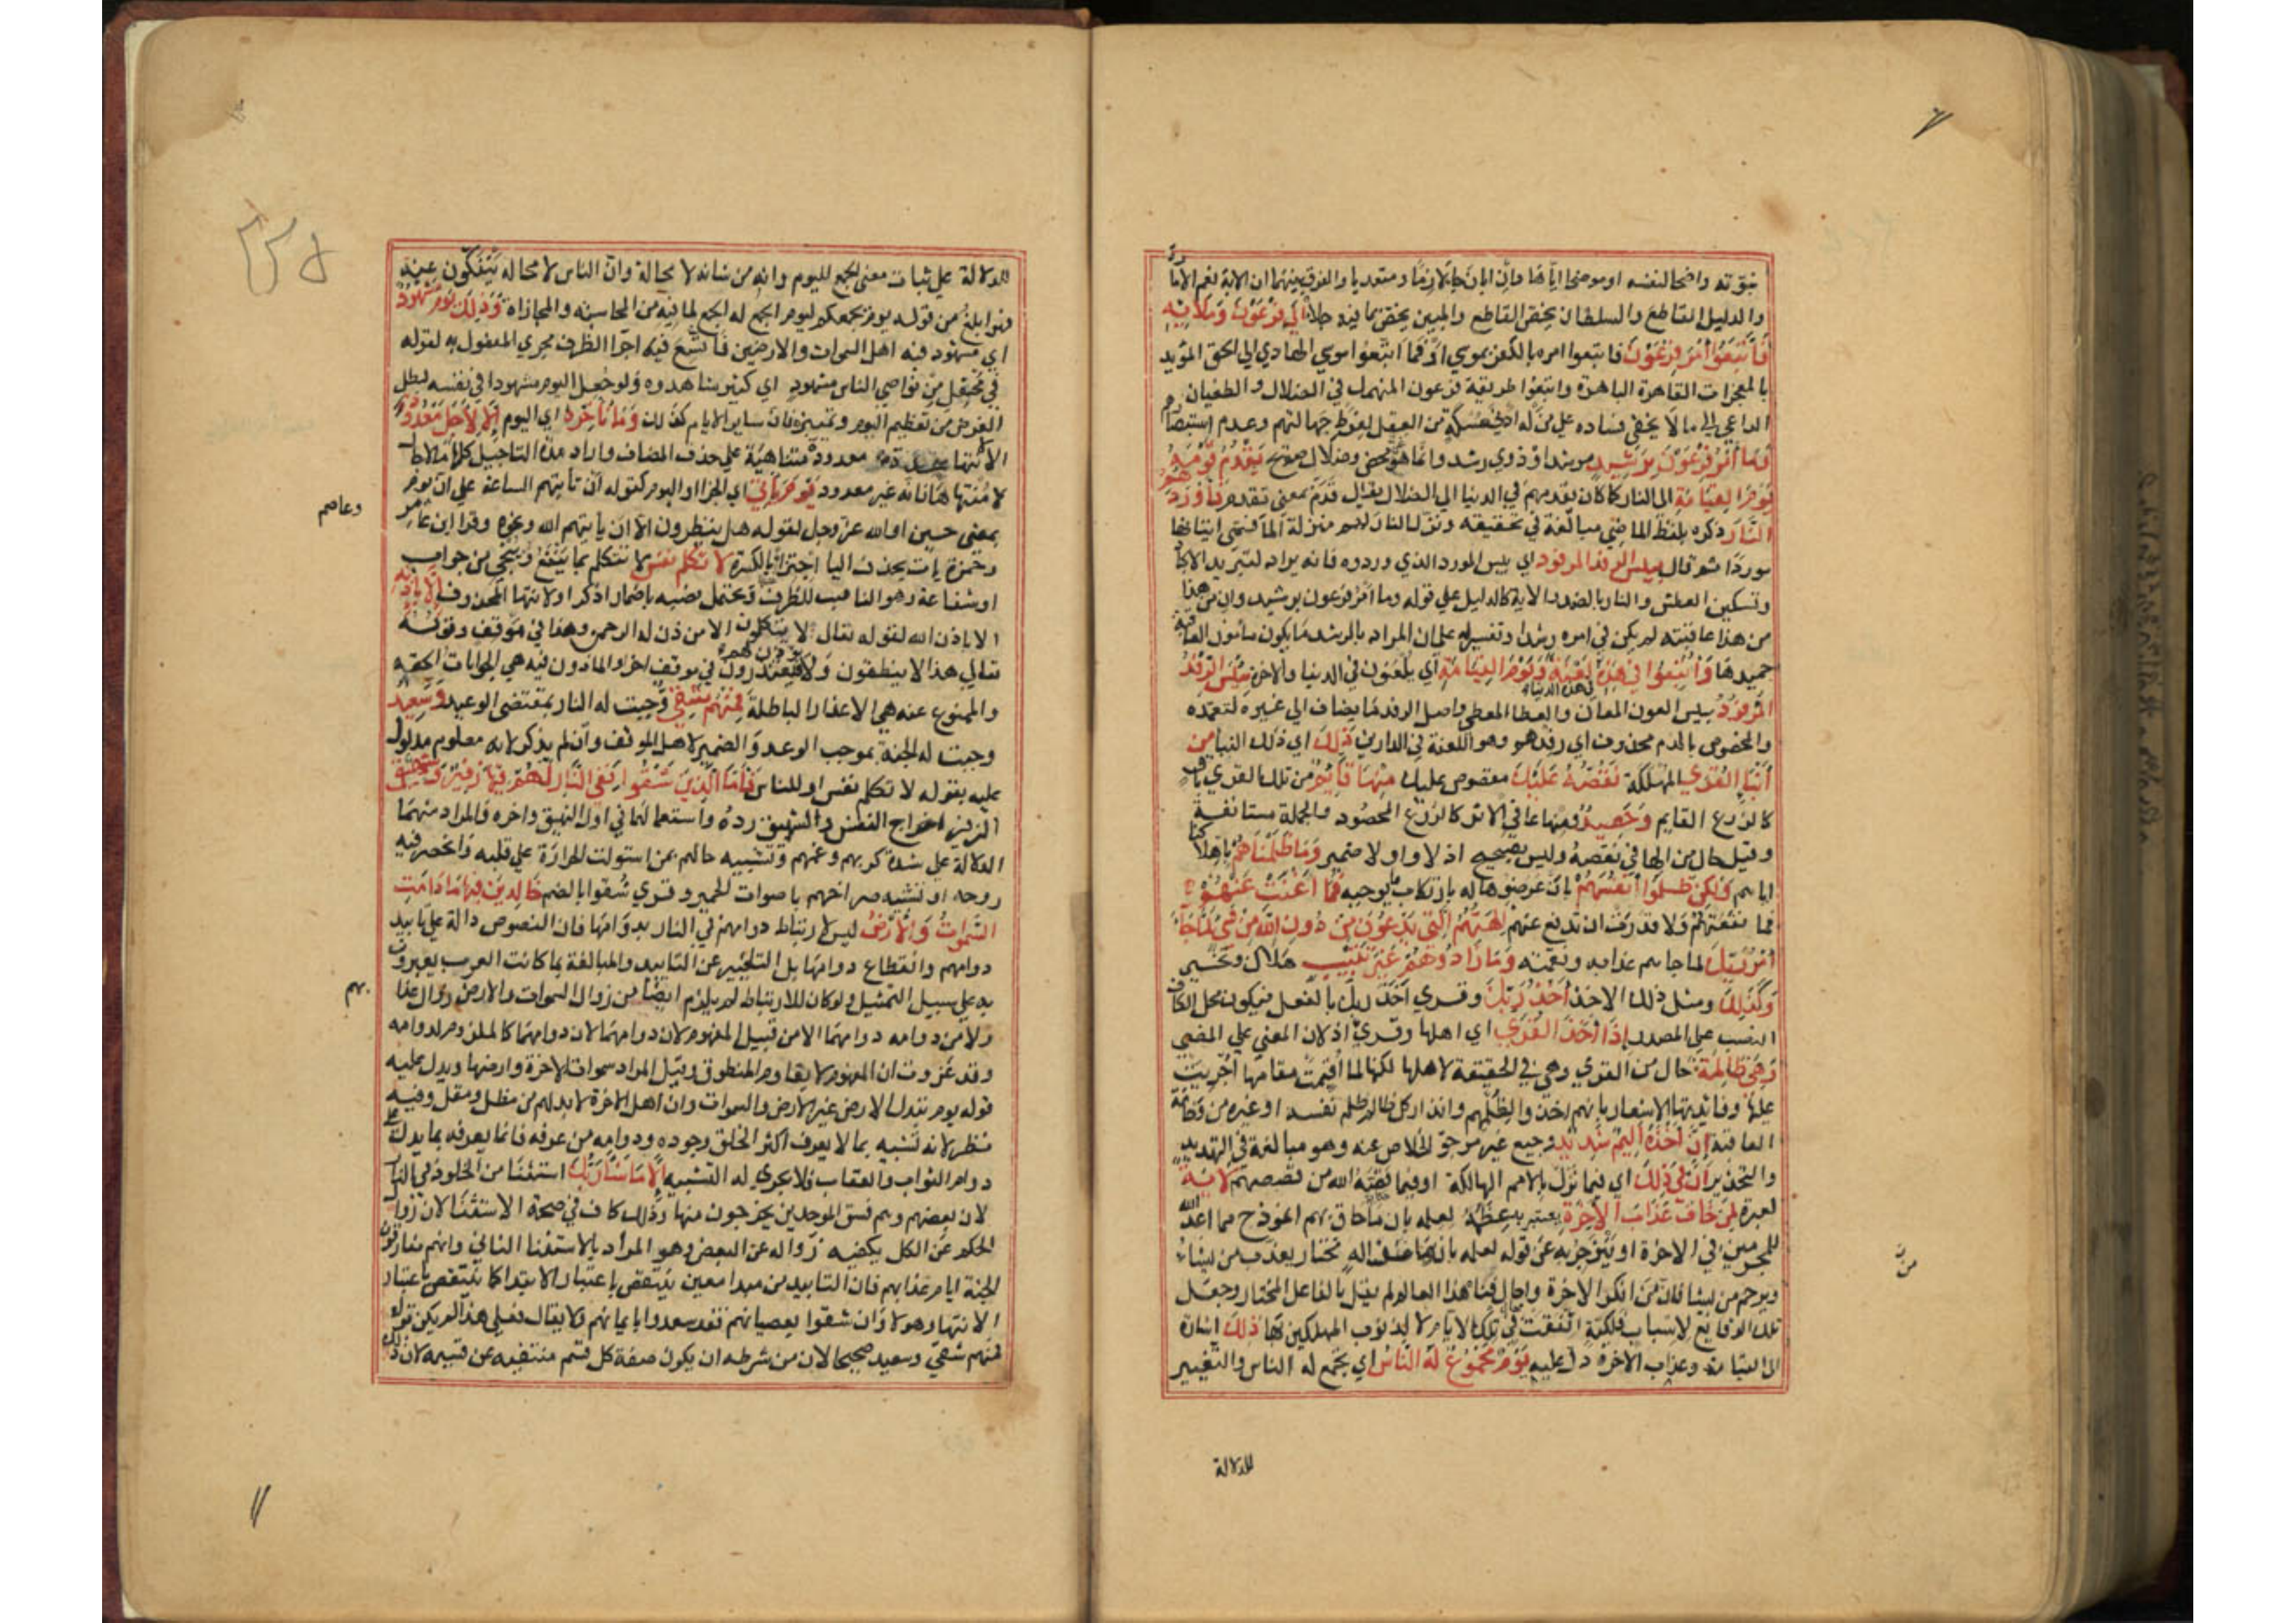 نبوته واضحا لنفسه او موضحا اياها فان ابان جا لازما ومتعديا والفرق بينهما ان الاية تعم الامارة
والدليل القاطع والسلطان يخص القاطع والمبين يخص بما فيه جلا الي فرعون وملايه
فاتبعوا امر فرعون فاتبعوا امره بالكفر بموسي او فما اتبعوا موسي الهادي الي الحق المؤيد
بالمعجزات القاهرة الباهرة واتبعوا طريقة فرعون المنهمك في الضلال والطغيان
الداعي الي مالا يخفي فساده علي من له ادني مسكة من العقل لفرط جهالتهم وعدم استبصارهم
وما امر فرعون برشيد مرشد او ذوي رشد وانما هو غي محض وضلال صريح يقدم قومه
يوم القيامة الي النار كما كان يقدمهم في الدنيا الي الضلال يقال قدم بمعني تقدم فاوردهم
النار ذكره بلفظ الماضي مبالغة في تحقيقه ونزل النار لهم منزلة الما فسمي اتيانها
موردا ثم قال بيس الورد المورود اي بيس المورد الذي وردوه فانه يراد لتبريد الاكباد
وتسكين العطش والنار بالضد والاية كالدليل علي قوله وما امر فرعون برشيد وان من هذا
من هذا عاقبته لم يكن في امره رشد او تفسير له علي ان المراد بالرشد ما يكون مامون العاقبة
حميدها واتبعوا في هذه لعنة ويوم القيامة اي يلعنون في الدنيا والاخرة بيس الرفد
في هذه الدنيا
المرفود بيس العون المعان والعطا المعطي واصل الرفد ما يضاف الي غيره لتعمده
والمخصوص بالذم محذوف اي رفدهم وهو اللعنة في الدارين ذلك اي ذلك النبا من
انبا القري المهلكة نقصه عليك مقصوص عليك منها قايم من تلك القري باق
كالزرع القايم وحصيد ومنها عافي الاثر كالزرع المحصود والجملة مستانفة
وقيل حال من الها في نقصه وليس بصحيح اذ لا واو ولا ضمير وما ظلمناهم باهلاكنا
اياهم ولكن ظلموا انفسهم بان عرضوها له بارتكاب ما يوجبه فما اغنت عنهم
فما نفعتهم ولا قدرت ان تدفع عنهم الهتهم التي يدعون من دون الله من شي لما جا
امر ربك لما جاهم عذابه ونقمته وما زادوهم غير تتبيب هلاك وتخسير
وكذلك ومثل ذلك الاخذ اخذ ربك وقري اخذ ربك بالفعل فيكون محل الكاف
النصب علي المصدر اذا اخذ القري اي اهلها وقري اذ لان المعني علي المضي
وهي ظالمة حال من القري وهي في الحقيقة لاهلها لكنها لما اقيمت مقامها اجريت
عليها وفايدتها الاشعار بانهم اخذوا لظلمهم وانذار كل ظالم ظلم نفسه او غيره من وخامة
العاقبة ان اخذه اليم شديد وجيع غير مرجو الخلاص عنه وهو مبالغة في التهديد
والتحذير ان في ذلك اي فيما نزل بالامم الهالكة او فيما قصه الله من قصصهم لاية
لعبرة لمن خاف عذاب الاخرة يعتبر به عظة لعلمه بان ما حاق بهم انموذج مما اعد الله
للمجرمين في الاخرة او ينزجر به عن قوله لعلمه بانها من اله مختار يعذب من يشا
ويرحم من يشا فان من انكر الاخرة واحال فنا هذا العالم لم يقل بالفاعل المختار وجعل
تلك الوقايع لاسباب فلكية اتفقت في تلك الايام لا لذنوب المهلكين بها ذلك اشارة
الي القيامة وعذاب الاخرة دل عليه يوم مجموع له الناس اي يجمع له الناس والتغيير
للدلالة
للدلالة علي ثبات معني الجمع لليوم وانه من شانه لا محالة وان الناس لا محالة ينفكون عنه
فهو ابلغ من قوله يوم يجمعكم ليوم الجمع له الجمع لما فيه من المحاسبة والمجازاة وذلك يوم مشهود
اي مشهود فيه اهل السموات والارضين فاتسع فيه اجرا الظرف مجري المفعول به لقوله
في محفل من نواصي الناس مشهود اي كثير شاهدوه ولو جعل اليوم مشهودا في نفسه لبطل
الغرض من تعظيم اليوم وتمييزه فان ساير الايام كذلك وما نوخره اي اليوم الا لاجل معدود
الا لانتها مدة معدودة متناهية علي حذف المضاف واراد مدة التاجيل كلها لا
لا منتهاها فانه غير معدود يوم ياتي اي الجزا او اليوم كقوله ان تاتيهم الساعة علي ان يوم
وعاصم
بمعني حين او الله عز وجل لقوله هل ينظرون الا ان ياتيهم الله ونحوه وقرا ابن عامر
وحمزة يات بحذف اليا اجتزا بالكسرة لا تكلم نفس لا تتكلم بما ينفع وينجي من جواب
او شفاعة وهو الناصب للظرف ويحتمل نصبه باضمار اذكر او لانتها المحذوف الا باذنه
الا باذن الله لقوله تعالي لا يتكلمون الا من اذن له الرحمن وهذا في موقف وقوله
تعالي هذا لا ينطقون ولا يوذن لهم فيعتذرون في موقف اخر او الماذون فيه هي الجوابات الحقة
والممنوع عنه هي الاعذار الباطلة فمنهم شقي وجبت له النار بمقتضي الوعيد وسعيد
وجبت له الجنة بموجب الوعد والضمير لاهل الموقف وان لم يذكر لانه معلوم مدلول
عليه بقوله لا تكلم نفس او للناس فاما الذين شقوا ففي النار لهم فيها زفير وشهيق
الزفير اخراج النفس والشهيق رده واستعمالهما في اول النهيق واخره والمراد منهما
الدلالة علي شدة كربهم وغمهم وتشبيه حالهم بمن استولت الحرارة علي قلبه وانحصر فيه
روحه او تشبيه صراخهم باصوات الحمير وقري شقوا بالضم خالدين فيها ما دامت
السموات والارض ليس لارتباط دوامهم في النار بدوامها فان النصوص دالة علي تابيد
دوامهم وانقطاع دوامها بل التعبير عن التابيد والمبالغة بما كانت العرب يعبرون
بهم
به علي سبيل التمثيل ولو كان للارتباط لم يلزم ايضا من زوال السموات والارض زوال عذا
ولا من دوامه دوامهما الا من قبيل المفهوم لان دوامهما كالملزوم لدوامه
وقد عرفت ان المفهوم لا يقاوم المنطوق وقيل المراد سموات الاخرة وارضها ويدل عليه
قوله يوم تبدل الارض غير الارض والسموات وان اهل الاخرة لابد لهم من مظل ومقل وفيه
نظر لانه تشبيه بما لا يعرف اكثر الخلق وجوده ودوامه ومن عرفه فانما يعرفه بما يدل علي
دوام الثواب والعقاب فلا يجري له التشبيه الا ما شا ربك استثنا من الخلود في النار
لان بعضهم وهم فسق الموحدين يخرجون منها وذلك كاف في صحة الاستثنا لان زوال
الحكم عن الكل يكفيه زواله عن البعض وهو المراد بالاستثنا الثاني وانهم مفارقون
الجنة ايام عذابهم فان التابيد من مبدا معين ينتقض باعتبار الابتدا كما ينتقض باعتبار
الانتها وهولا وان شقوا بعصيانهم فقد سعدوا بايمانهم ولا يقال فعلي هذا لم يكن قوله
فمنهم شقي وسعيد صحيحا لان من شرطه ان يكون صفة كل قسم منتفيه عن قسيمه لان ذلك